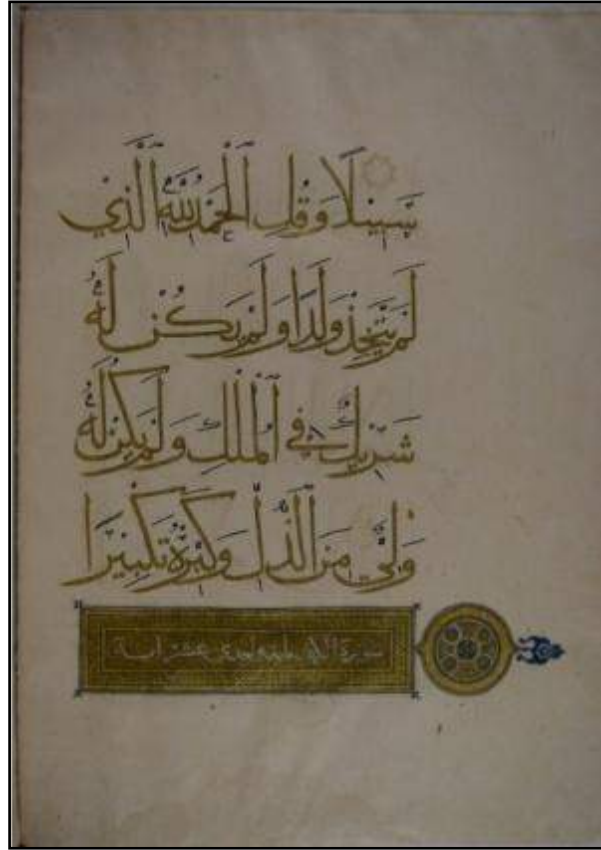 سَبِيلًا وَقُلِ الْحَمْدُ لِلَّهِ الَّذِي
لَمْ يَتَّخِذْ وَلَدًا وَلَمْ يَكُنْ لَهُ
شَرِيكٌ فِي الْمُلْكِ وَلَمْ يَكُنْ لَهُ
وَلِيٌّ مِنَ الذُّلِّ وَكَبِّرْهُ تَكْبِيرًا
سورة عشر اية